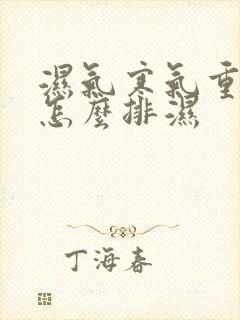 濕氣寒氣重
怎麼排濕
丁海春